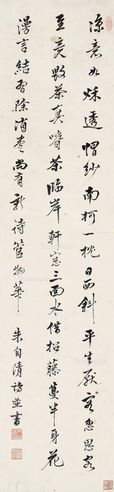 凉意如秋透帽纱南柯一枕日西斜平生厌客忽思客
至竟敲茶真嗜茶临岸轩窗三面水借招藤蔓半身花
漫言结习除消尽尚有新诗管物华 朱自清诗并书